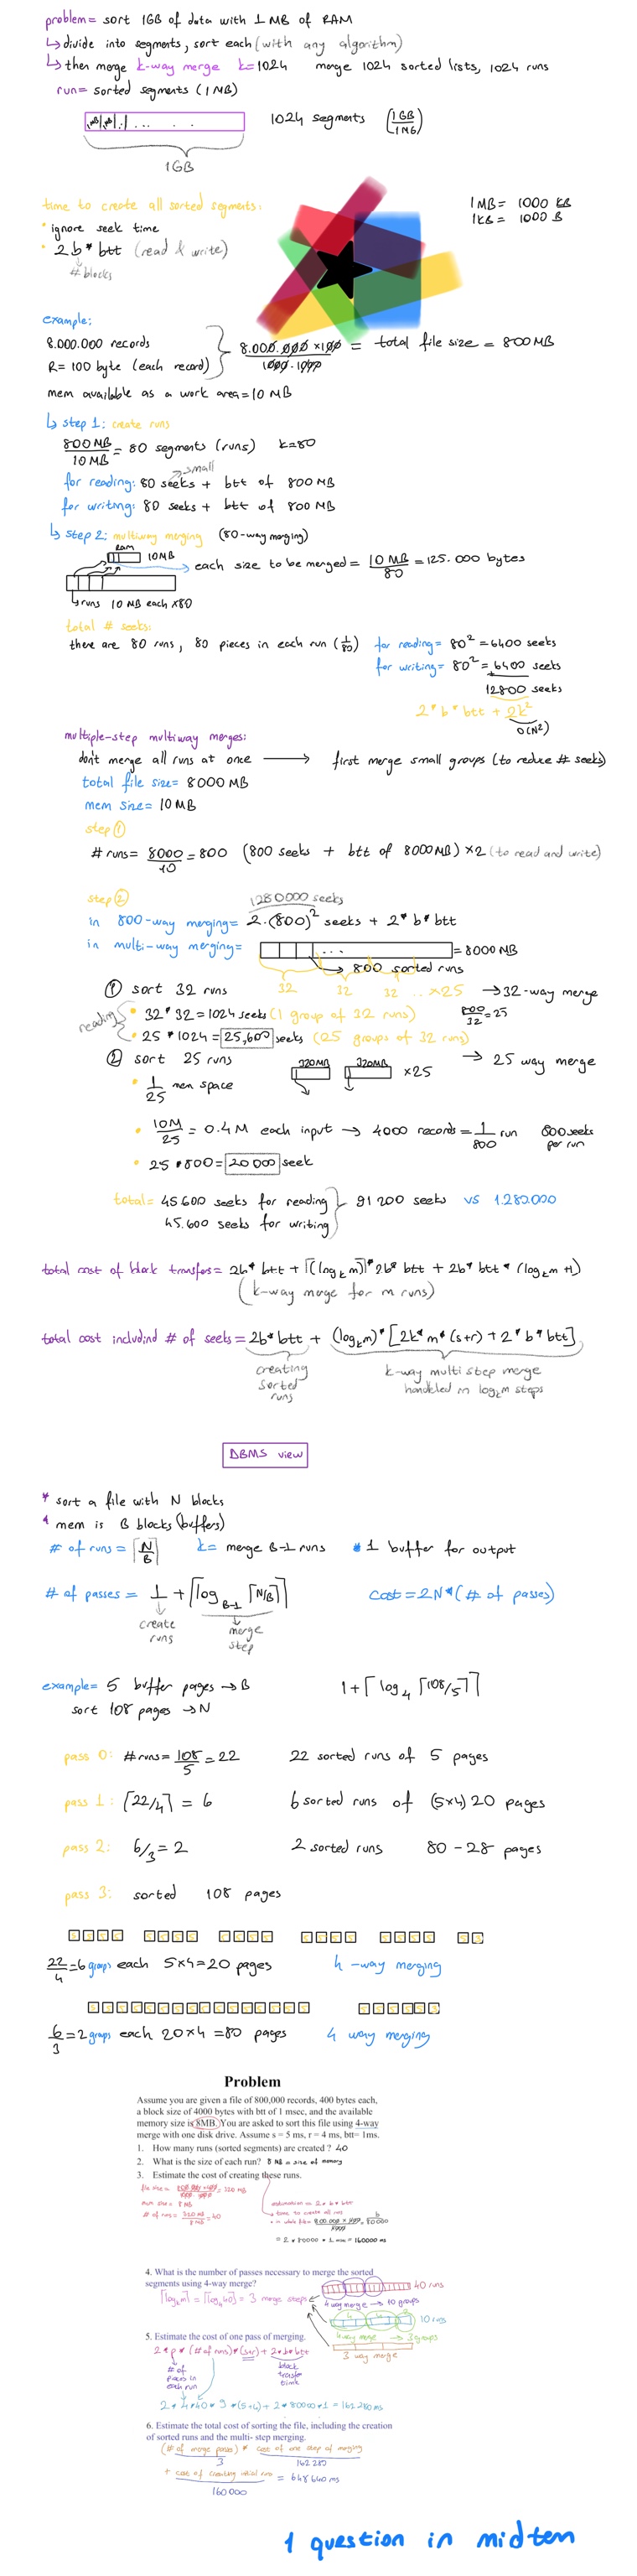 problem= sort 1GB of data with 1 MB of RAM
↳ divide into segments, sort each (with any algorithm)
↳ then merge k-way merge k=1024 merge 1024 sorted lists, 1024 runs
run= sorted segments (1MB)
1024 segments (1GB/1MB)
1GB
time to create all sorted segments:
• ignore seek time
• 2b * btt (read & write)
# blocks
1MB= 1000 KB
1KB= 1000 B
example:
8.000.000 records
R= 100 byte (each record)
8.000.000 x100 / 1000.1000 = total file size = 800MB
mem available as a work area= 10 MB
↳ step 1: create runs
800MB/10MB = 80 segments (runs) k=80
small
for reading: 80 seeks + btt of 800 MB
for writing: 80 seeks + btt of 800 MB
↳ step 2: multiway merging (80-way merging)
RAM
10MB
each size to be merged= 10 MB/80 = 125.000 bytes
runs 10 MB each x80
total # seeks:
there are 80 runs, 80 pieces in each run (1/80)
for reading= 80² = 6400 seeks
for writing= 80² = 6400 seeks
+
12800 seeks
2*b*btt + 2k²
O(N²)
multiple-step multiway merges:
don't merge all runs at once → first merge small groups (to reduce # seeks)
total file size= 8000 MB
mem size= 10 MB
step ①
# runs= 8000/10 = 800 (800 seeks + btt of 8000MB) x2 (to read and write)
step ②
1280000 seeks
in 800-way merging= 2.(800)² seeks + 2*b*btt
in multi-way merging= ... = 8000 MB
→ 800 sorted runs
32 32 32 ... x25 → 32-way merge
① sort 32 runs
reading
• 32*32=1024 seeks (1 group of 32 runs)
800/32=25
• 25*1024= 25,600 seeks (25 groups of 32 runs)
② sort 25 runs
320MB 320MB x25 → 25 way merge
• 1/25 mem space
• 10M/25 = 0.4M each input → 4000 records= 1/800 run 800 seeks per run
• 25*800= 20 000 seek
total= 45.600 seeks for reading
45.600 seeks for writing
91 200 seeks vs 1.280.000
total cost of block transfers= 2b* btt + ⌈(logₖm)⌉* 2b* btt + 2b* btt * (logₖm +1)
(k-way merge for m runs)
total cost includind # of seeks= 2b* btt + (logₖm)* [2k* m* (s+r) + 2* b* btt]
creating sorted runs
k-way multi step merge
handeled in logₖm steps
DBMS view
* sort a file with N blocks
* mem is B blocks (buffers)
# of runs = ⌈N/B⌉ k= merge B-1 runs * 1 buffer for output
# of passes = 1 + ⌈log B-1 ⌈N/B⌉⌉ cost=2N*(# of passes)
create runs
merge step
example= 5 buffer pages → B
sort 108 pages → N
1+⌈log₄ ⌈108/5⌉⌉
pass 0: # runs= 108/5 = 22 22 sorted runs of 5 pages
pass 1: ⌈22/4⌉ = 6 6 sorted runs of (5x4) 20 pages
pass 2: 6/3 = 2 2 sorted runs 80 - 28 pages
pass 3: sorted 108 pages
22/4 =6 groups each 5x4=20 pages 4 -way merging
6/3 =2 groups each 20x4 =80 pages 4 way merging
Problem
Assume you are given a file of 800,000 records, 400 bytes each,
a block size of 4000 bytes with btt of 1 msec, and the available
memory size is 8MB. You are asked to sort this file using 4-way
merge with one disk drive. Assume s = 5 ms, r = 4 ms, btt= 1ms.
1. How many runs (sorted segments) are created ? 40
2. What is the size of each run? 8 MB = size of memory
3. Estimate the cost of creating these runs.
# of runs = 320 MB/8 MB = 40
= 2 * 80000 * 1 ms = 160000 ms
4. What is the number of passes necessary to merge the sorted
segments using 4-way merge?
⌈logₖm⌉ = ⌈log₄40⌉ = 3 merge steps
40 runs
4 way merge → 10 groups
10 runs
4 way merge → 3 groups
3 way merge
5. Estimate the cost of one pass of merging.
2 * p * (# of runs)*(s+r) + 2*b*btt
# of pieces in each run
block transfer time
2 * 4*40 * 9 *(5+4) + 2 * 80000*1 = 162 280 ms
6. Estimate the total cost of sorting the file, including the creation
of sorted runs and the multi- step merging.
(# of merge passes) * cost of one step of merging
3
162 280
+ cost of creating initial runs = 648 640 ms
160 000
1 question in midterm